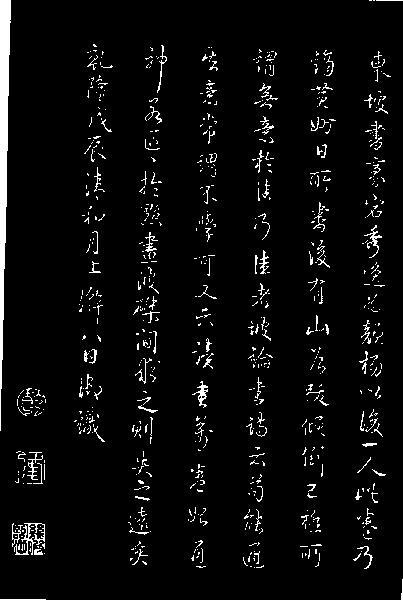 東坡書豪宕秀逸為顏楊以後一人此卷乃
謫黃州日所書後有山谷跋傾倒已極所
謂無意於佳乃佳者坡論書詩云苟能通
其意常謂不學可又云讀書萬卷始通
神若區〻於點畫波磔間求之則失之遠矣
乾隆戊辰清和月上澣八日御識